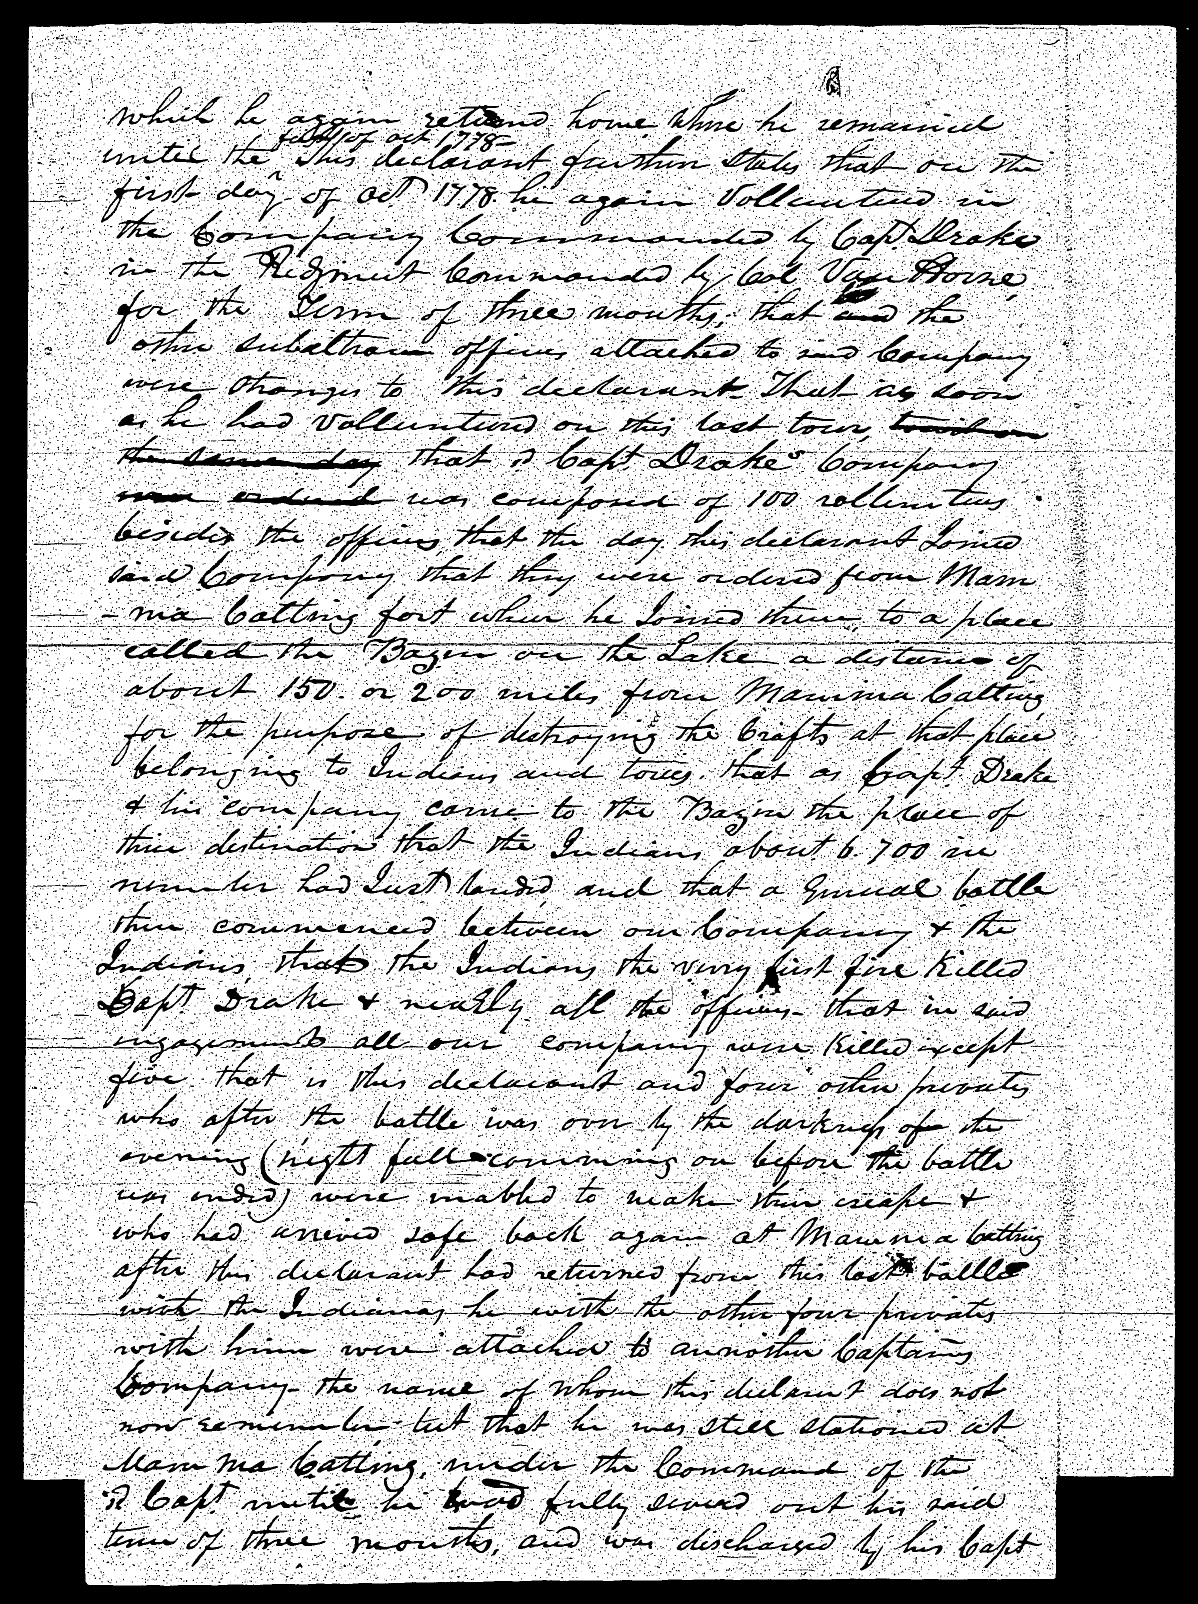 which he again returnd home where he remained
fall of oct 1778 -
until the This declarant further States that on the
first day of oct 1778 he again Vollunteered in
the Company Commanded by Capt Drake
in the Regiment Commanded by Col Van Horne,
for the Term of three months, that and the
other subaltern officers attached to said Company
were strangers to this declarant - That as soon
as he had vollunteered on this last tour,
the same day that sd Capt Drakes Company
was ordered was composed of 100 vollunteers
besides the officers, that the day this declarant Joined
said Company that they were ordered from Mam
- ma Catting fort where he Joined them, to a place
called the Bazin on the Lake a distance of
about 150. or 200 miles from Mamma Catting,
for the purpose of destroying the Crafts at that place
belonging to Indians and tories. that as Capt. Drake
& his company came to the Bazin the place of
thier destination that the Indians about 6. 700 in
number had Just landed, and that a general battle
then commenced between our Company & the
Indians, that the Indians the very first fire Killed
Capt. Drake & nearly all the officers - that in said
engagements all our company were Killed except
five that is this declarant and four other privates
who after the battle was over by the darkness of the
evening (night fall comming on before the battle
was ended) were enabled to make thier escape &
who had arrived safe back again at Mamma Catting
after this declarant had returned from this last battle
with the Indians, he with the other four privates
with him were attached to annother Captains
Company - the name of whom this declarant does not
now remember - but that he was still stationed at
Mam ma Catting, under the Command of the
sd Capt untill he had fully served out his said
term of three months, and was discharged by his Capt